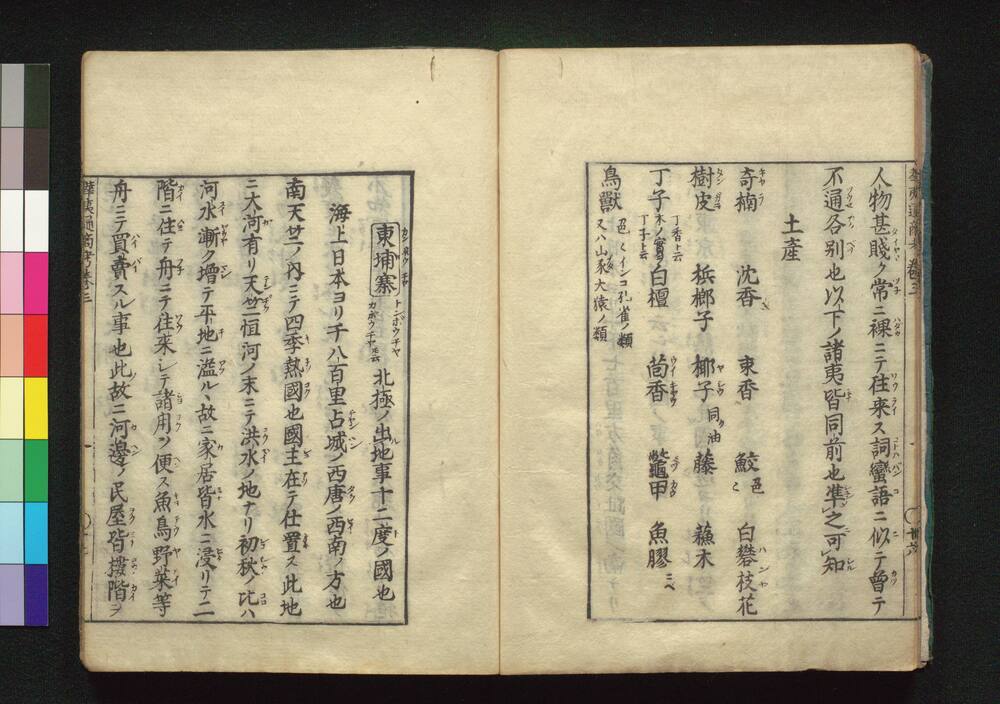 人物甚賤ク常ニ裸ニテ往来ス詞蠻語ニ似テ曾テ
不通各别也以下ノ諸夷皆同前也準之可知
土産
奇楠 沈香 束香 鮫色〱 白礬枝花
樹皮 梹榔子 椰子同油 藤 蘓木
丁子丁香ト云木ノ實ヲ丁子ト云 白檀 茴香 鼈甲 魚膠ニベ
鳥獸色〱インコ孔雀ノ類又ハ山豕大猿ノ類
東埔寨トンボウチヤカボウチヤ共云 北極ノ出地事十二度ノ國也
海上日本ヨリ千八百里占城ノ西唐ノ西南ノ方也
南天竺ノ内ニテ四季熱國也國主在テ仕置ス此地
ニ大河有リ天竺恒河ノ末ニテ洪水ノ地ナリ初秋ノ比ハ
河水漸ク增テ平地ニ溢ル、故ニ家居皆水ニ浸リテ二
階ニ住テ舟ニテ往來シテ諸用ヲ便ス魚鳥野菜等
舟ニテ買賣スル事也此故ニ河邊ノ民屋皆㩜階ヲ
華夷通商考卷三